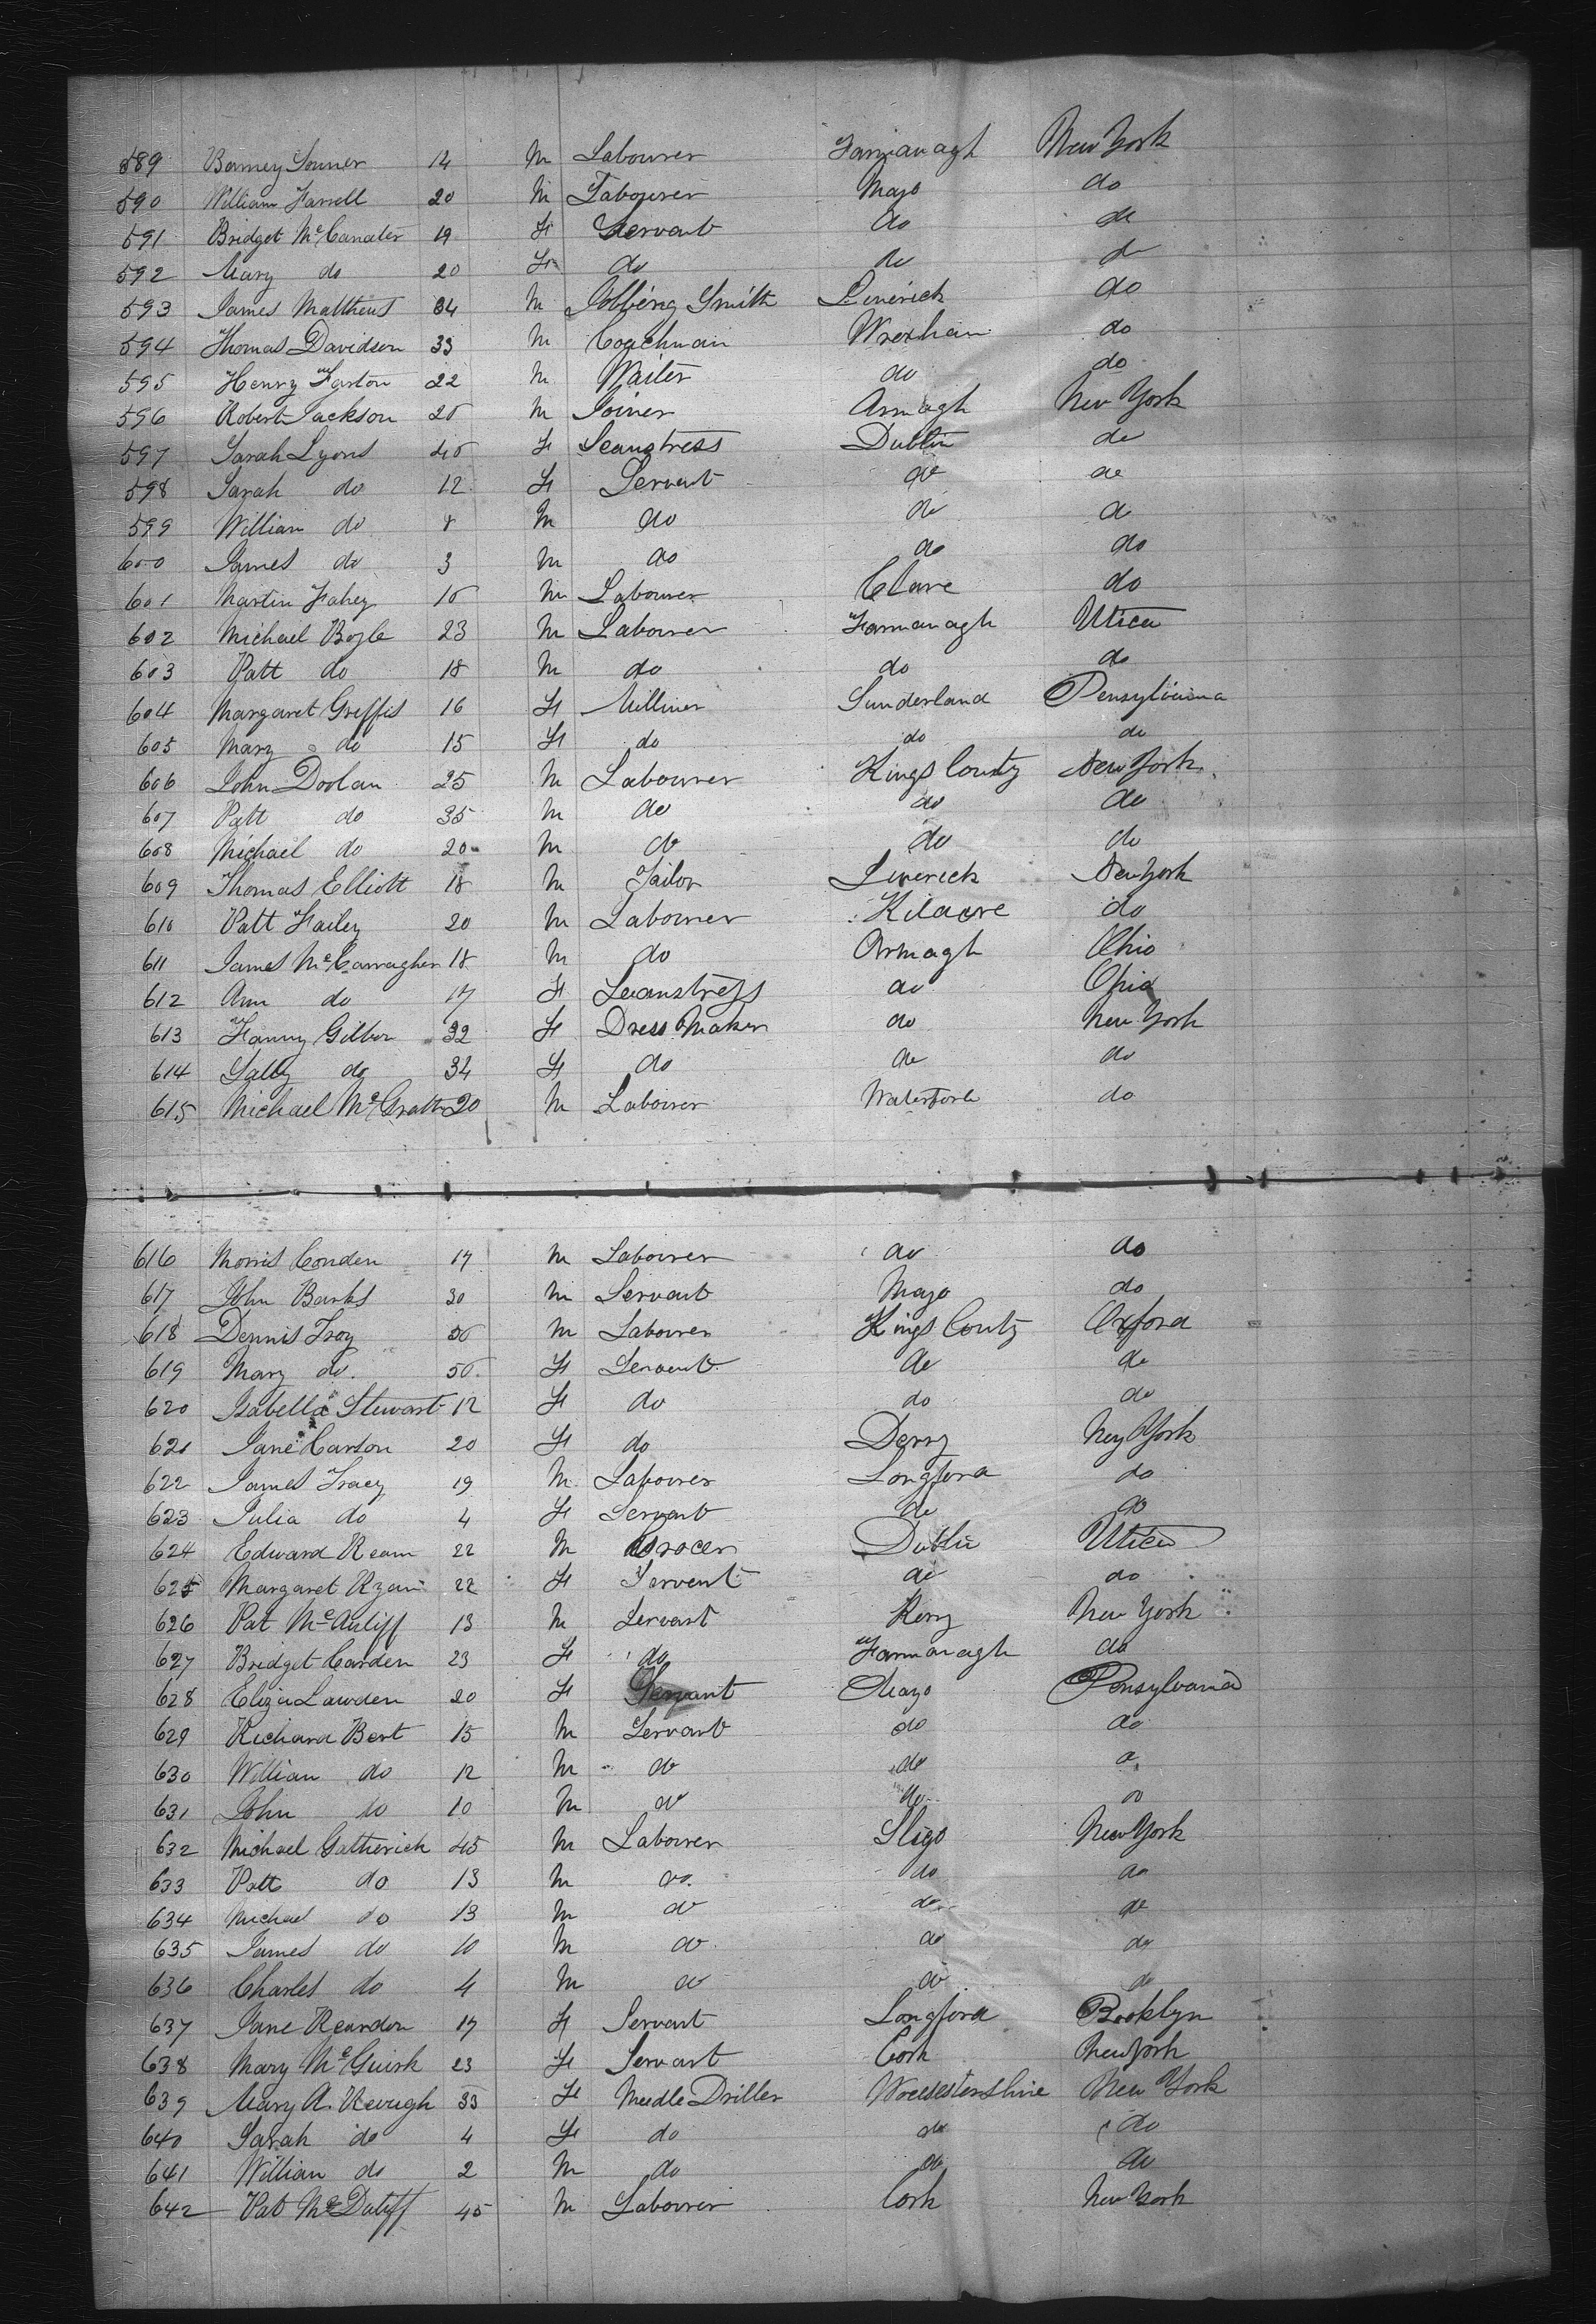 589 Barney Sonner 14 M Labourer Farmanagh New York
590 William Farrell 20 M Labourer Mayo do
591 Bridget McCanaler 19 F Servant do do
592 Mary do 20 F do do do
593 James Matthews 34 M Jobbing Smith Limerick do
594 Thomas Davidson 33 M Coachman Wrexham do
595 Henry Garton 22 M Waiter do do
596 Robert Jackson 20 M Joiner Armagh New York
597 Sarah Lyons 40 F Seamstress Dublin do
598 Sarah do 12 F Servant do do
599 William do 8 M do do do
600 James do 3 M do do do
601 Martin Fahey 16 M Labourer Clare do
602 Michael Boyle 23 M Labourer Farmanagh Utica
603 Patt do 18 M do do do
604 Margaret Greffis 16 F Milliner Sunderland Pensylvania
605 Mary do 15 F do do do
606 John Doolan 25 M Labourer Kings County New York
607 Patt do 35 M do do do
608 Michael do 20 M do do do
609 Thomas Elliott 18 M Tailor Limerick New York
610 Patt Failey 20 M Labourer Kildare do
611 James McCarragher 18 M do Armagh Ohio
612 Ann do 17 F Seamstress do Ohio
613 Fanny Gilbor 32 F Dress Maker do New York
614 Sally do 34 F do do do
615 Michael McGrath 20 M Labourer Waterford do
616 Morris Conden 17 M Labourer do do
617 John Banks 30 M Servant Mayo do
618 Dennis Troy 50 M Labourer Kings Conty Oxford
619 Mary do 50 F Servant do do
620 Isabella Stewart 12 F do do do
621 Jane Carson 20 F do Derry New York
622 James Tracy 19 M Labourer Longford do
623 Julia do 4 F Servant do do
624 Edward Ream 22 M Grocer Dublin Utica
625 Margaret Ryan 22 F Servent do do
626 Pat McAuliff 13 M Servant Kerry New York
627 Bridget Carden 23 F do Farmanagh do
628 Eliza Lawden 20 F Servant Mayo Pensylvania
629 Richard Bert 15 M Servant do do
630 William do 12 M do do do
631 John do 10 M do do do
632 Michael Gatherich 45 M Labourer Sligo New York
633 Patt do 13 M do do do
634 Michael do 13 M do do do
635 James do 10 M do do do
636 Charles do 4 M do do do
637 Jane Reardon 17 F Servant Longford Brooklyn
638 Mary McGuirk 23 F Servant Cork New York
639 Mary A. Keough 33 F Needle Driller Worcestershire New York
640 Sarah do 4 F do do do
641 William do 2 M do do do
642 Pat McDuliff 45 M Labourer Cork New York